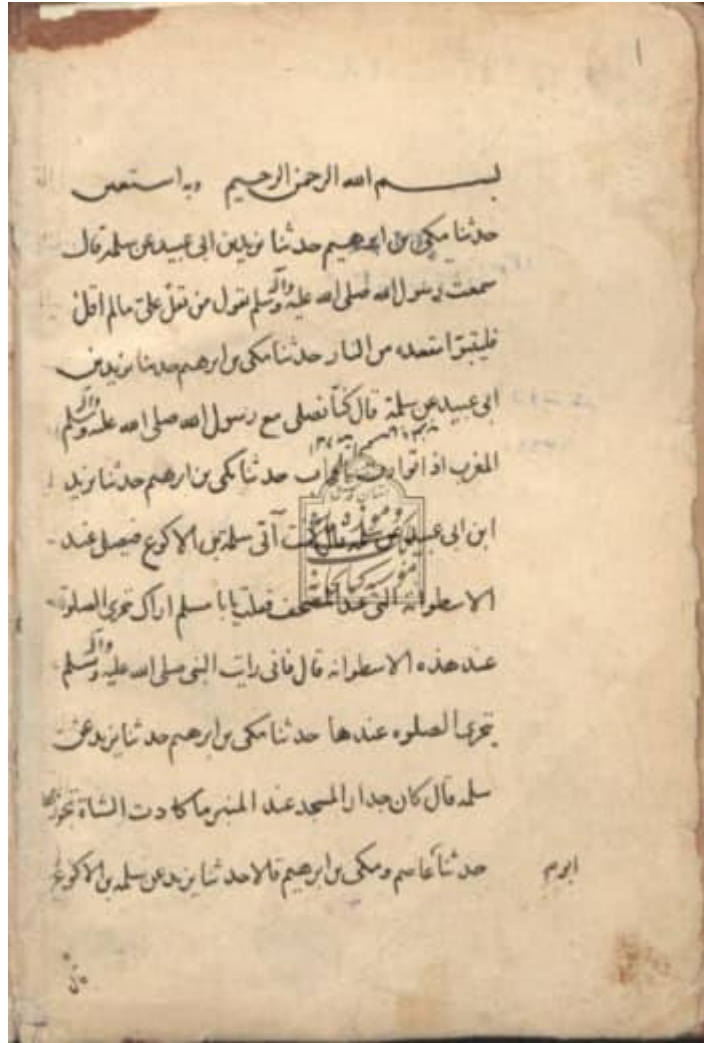 ١
بسم الله الرحمن الرحيم وبه استعين
حدثنا مكي بن ابرهيم حدثنا يزيد بن ابي عبيد عن سلمة قال
سمعت رسول الله صلى الله عليه وآله وسلم يقول من تقل علي مالم اقل
فليتبوا مقعده من النار حدثنا مكي بن ابرهيم حدثنا يزيد بن
ابي عبيد عن سلمة قال كنا نصلي مع رسول الله صلى الله عليه وآله وسلم
المغرب اذا توارت بالحجاب حدثنا مكي بن ابرهيم حدثنا يزيد
ابن ابي عبيد قال كنت آتي سلمة بن الاكوع فيصلي عند
الاسطوانة التي عند المصحف فقلت يابا مسلم اراك تتحرى الصلوة
عند هذه الاسطوانه قال فاني رايت النبي صلى الله عليه وآله وسلم
يتحرى الصلوه عندها حدثنا مكي بن ابرهيم حدثنا يزيد عن
سلمه قال كان جدار المسجد عند المنبر ما كادت الشاة تجوزها
حدثنا عاصم ومكي بن ابرهيم قالا حدثنا يزيد عن سلمه بن الاكوع
ابو